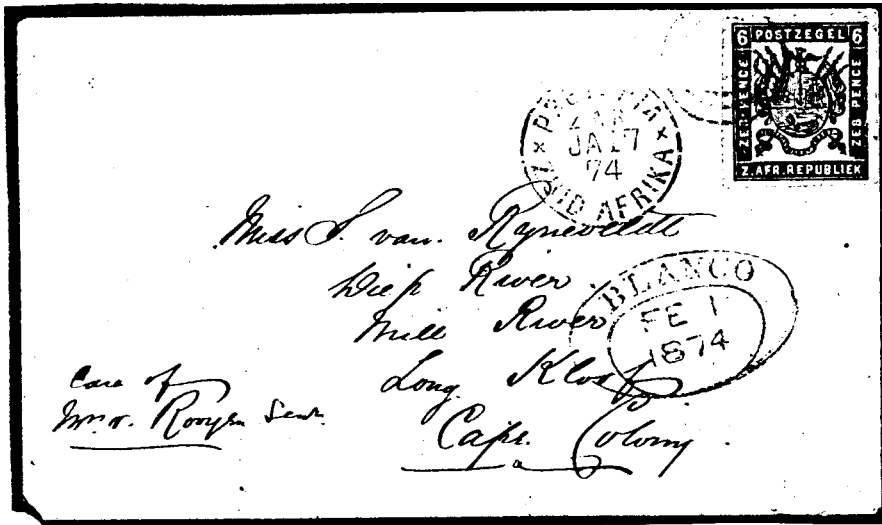 6 POSTZEGEL 6
ZES PENCE
ZES PENCE
Z. AFR. REPUBLIEK
JA 17
74
ZUID AFRIKA
Miss S. van. Ryneveldt
Diep River
Mill River
Long Kloof
Cape. Colony
BLANCO
FE 1
1874
Care of
Rooyen Senr.